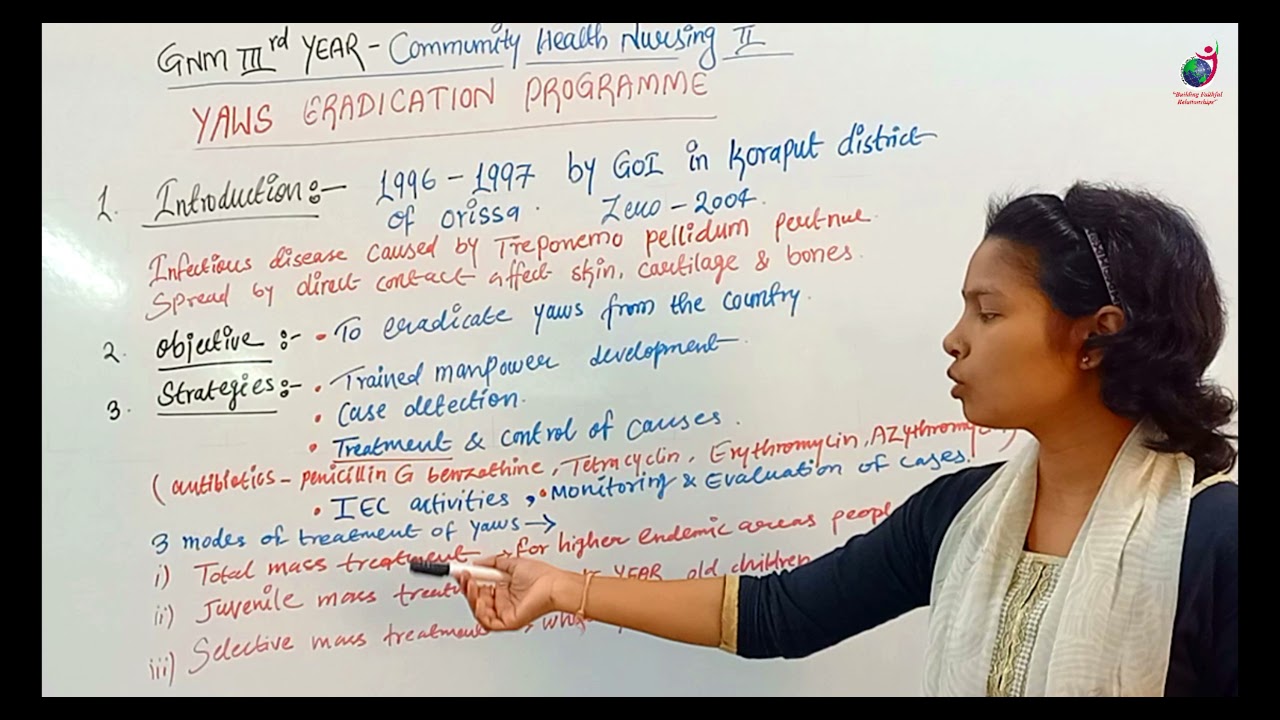 GNM IIIrd YEAR - Community Health Nursing II
YAWS ERADICATION PROGRAMME
"Building Faithful
Relationships"
1. Introduction :- 1996 - 1997 by GOI in Koraput district
of orissa. Zero - 2004.
Infectious disease caused by Treponemo pellidum pertnue.
Spread by direct contact affect skin, cartilage & bones.
2. Objective :- • To eradicate yaws from the country.
3. Strategies :- • Trained manpower development.
• Case detection.
• Treatment & control of causes.
(antibiotics - penicillin G benzathine, Tetracyclin, Erythromycin, AZythromycin)
• IEC activities, • Monitoring & Evaluation of cases.
3 modes of treatment of yaws →
i) Total mass treatment → for higher endemic areas people
ii) Juvenile mass YEAR old children
iii) Selective mass treatment →